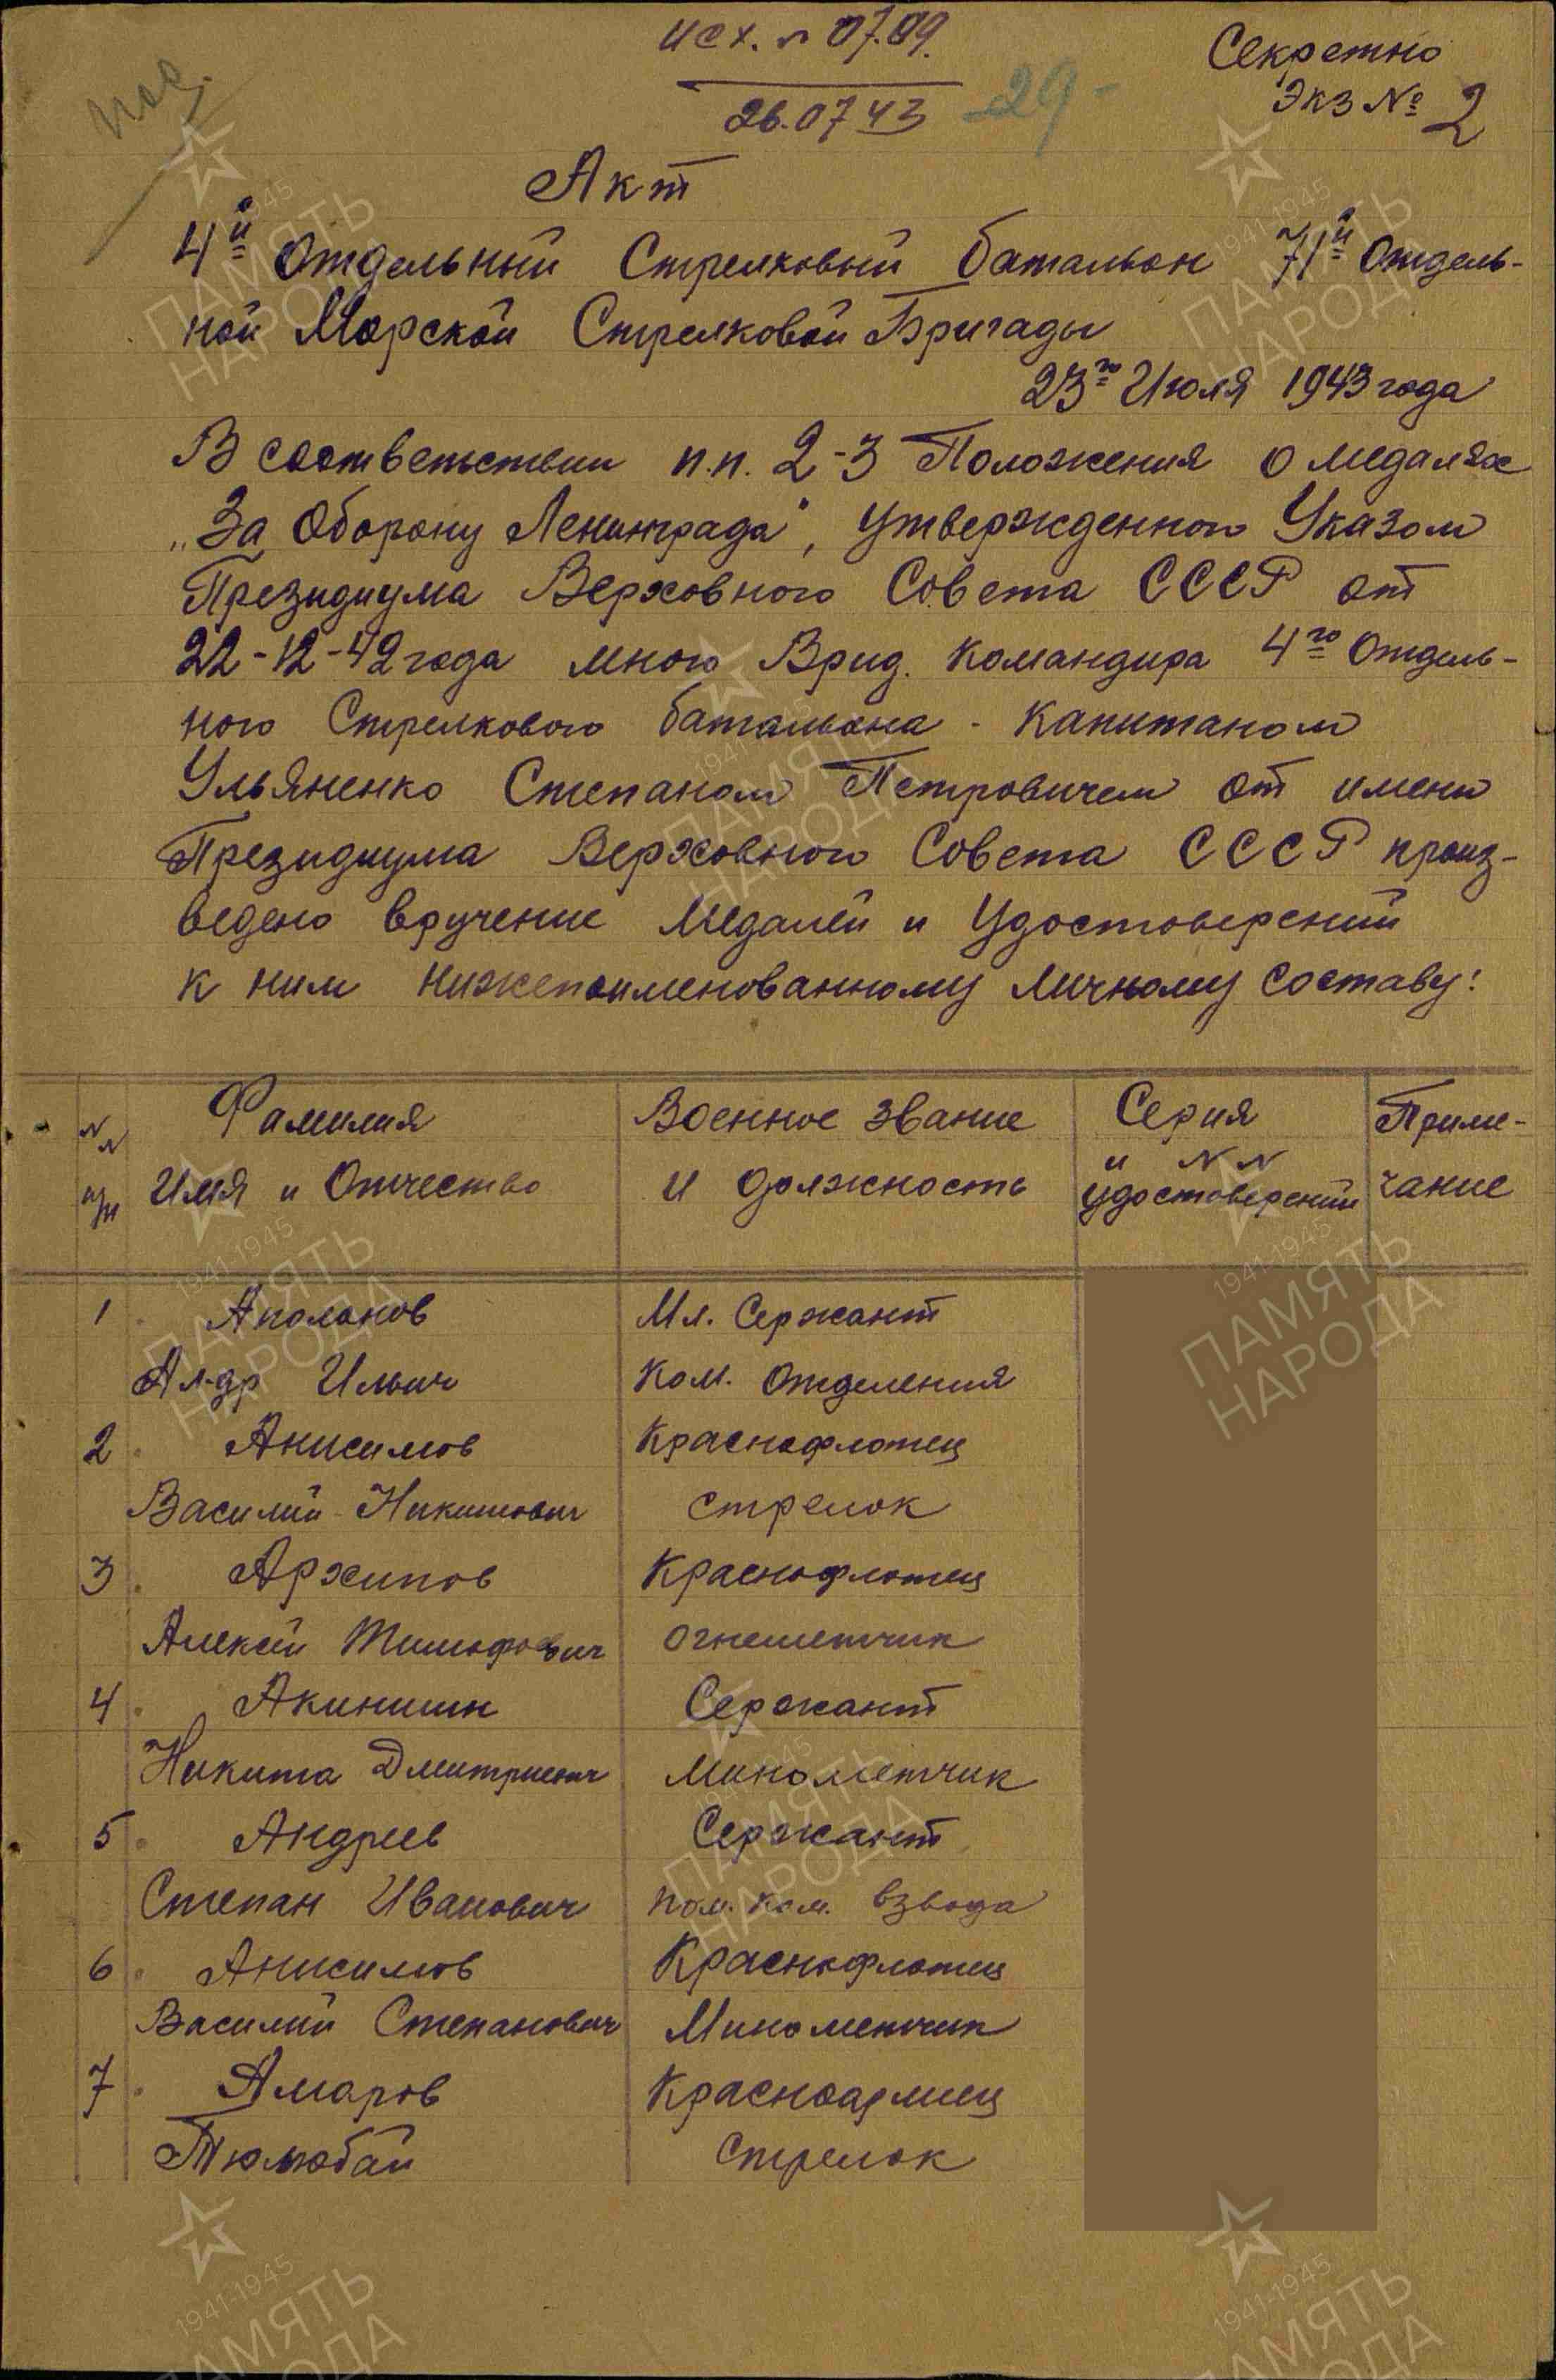 исх. n 07.09.
26.07 43
-29-
Секретно
Экз № 2
Акт
4й Отдельный Стрелковый батальон 71й Отдель-
ной Морской Стрелковой Бригады
23го Июля 1943 года
В соответствии п.п. 2-3 Положения о медалях
„За Оборону Ленинграда", утвержденного Указом
Президиума Верховного Совета СССР от
22-12-42 года мною Врид. Командира 4го Отдель-
ного Стрелкового батальона - Капитаном
Ульяненко Степаном Петровичем от имени
Президиума Верховного Совета СССР произ-
ведено вручение медалей и Удостоверений
к ним нижепоименованному личному составу:
NN п/п
Фамилия
Имя и Отчество
Военное звание
и должность
Серия
и N N
удостоверений
Приме-
чание
1 Аполонов Мл. Сержант
Ал-др Ильич Ком. Отделения
2 Анисимов Краснофлотец
Василий Никитович стрелок
3 Архипов Краснофлотец
Алексей Тимофеевич огнеметчик
4 Акинишин Сержант
Никита Дмитриевич Минометчик
5 Андреев Сержант
Степан Иванович пом. ком. взвода
6 Анисимов Краснофлотец
Василий Степанович Минометчик
7 Амаров Красноармеец
Тюлюбай Стрелок
1941-1945
ПАМЯТЬ
НАРОДА